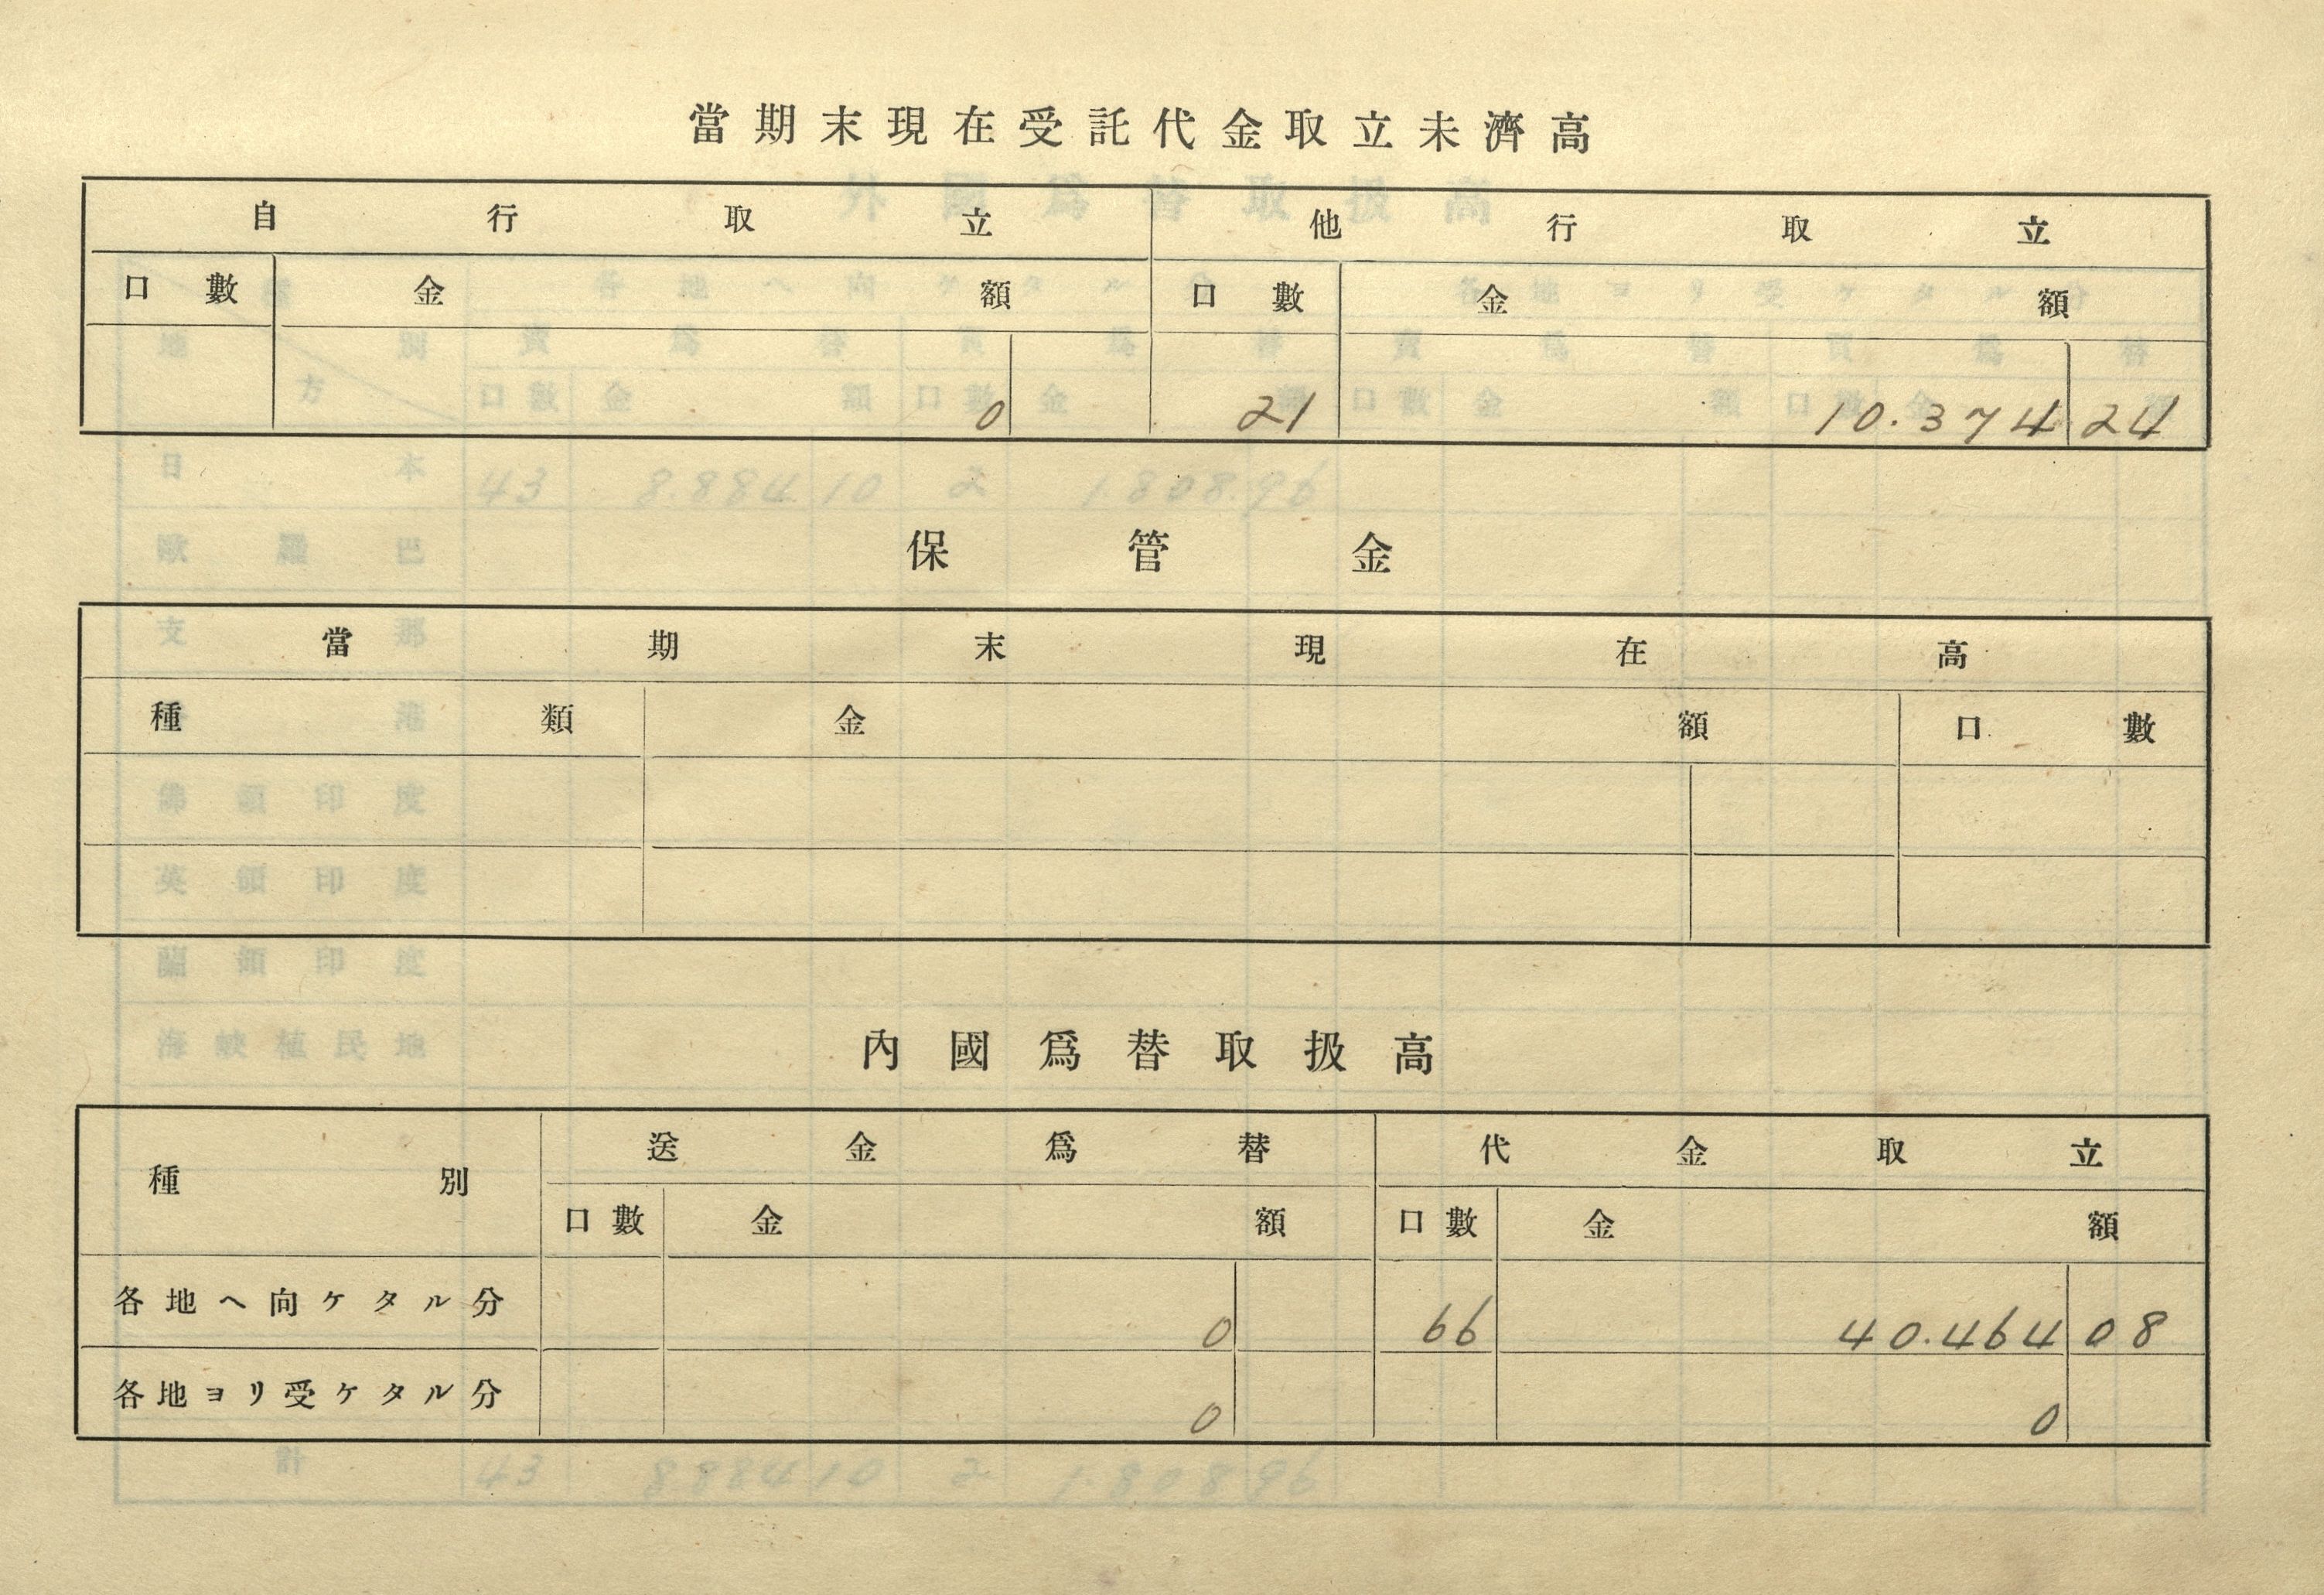 當期末現在受託代金取立未濟高
自行取立 他行取立
口數 金額 口數 金額
0 21 10.374 24
保管金
當期末現在高
種類 金額 口數
內國爲替取扱高
種別 送金爲替 代金取立
口數 金額 口數 金額
各地ヘ向ケタル分 0 66 40.464 08
各地ヨリ受ケタル分 0 0